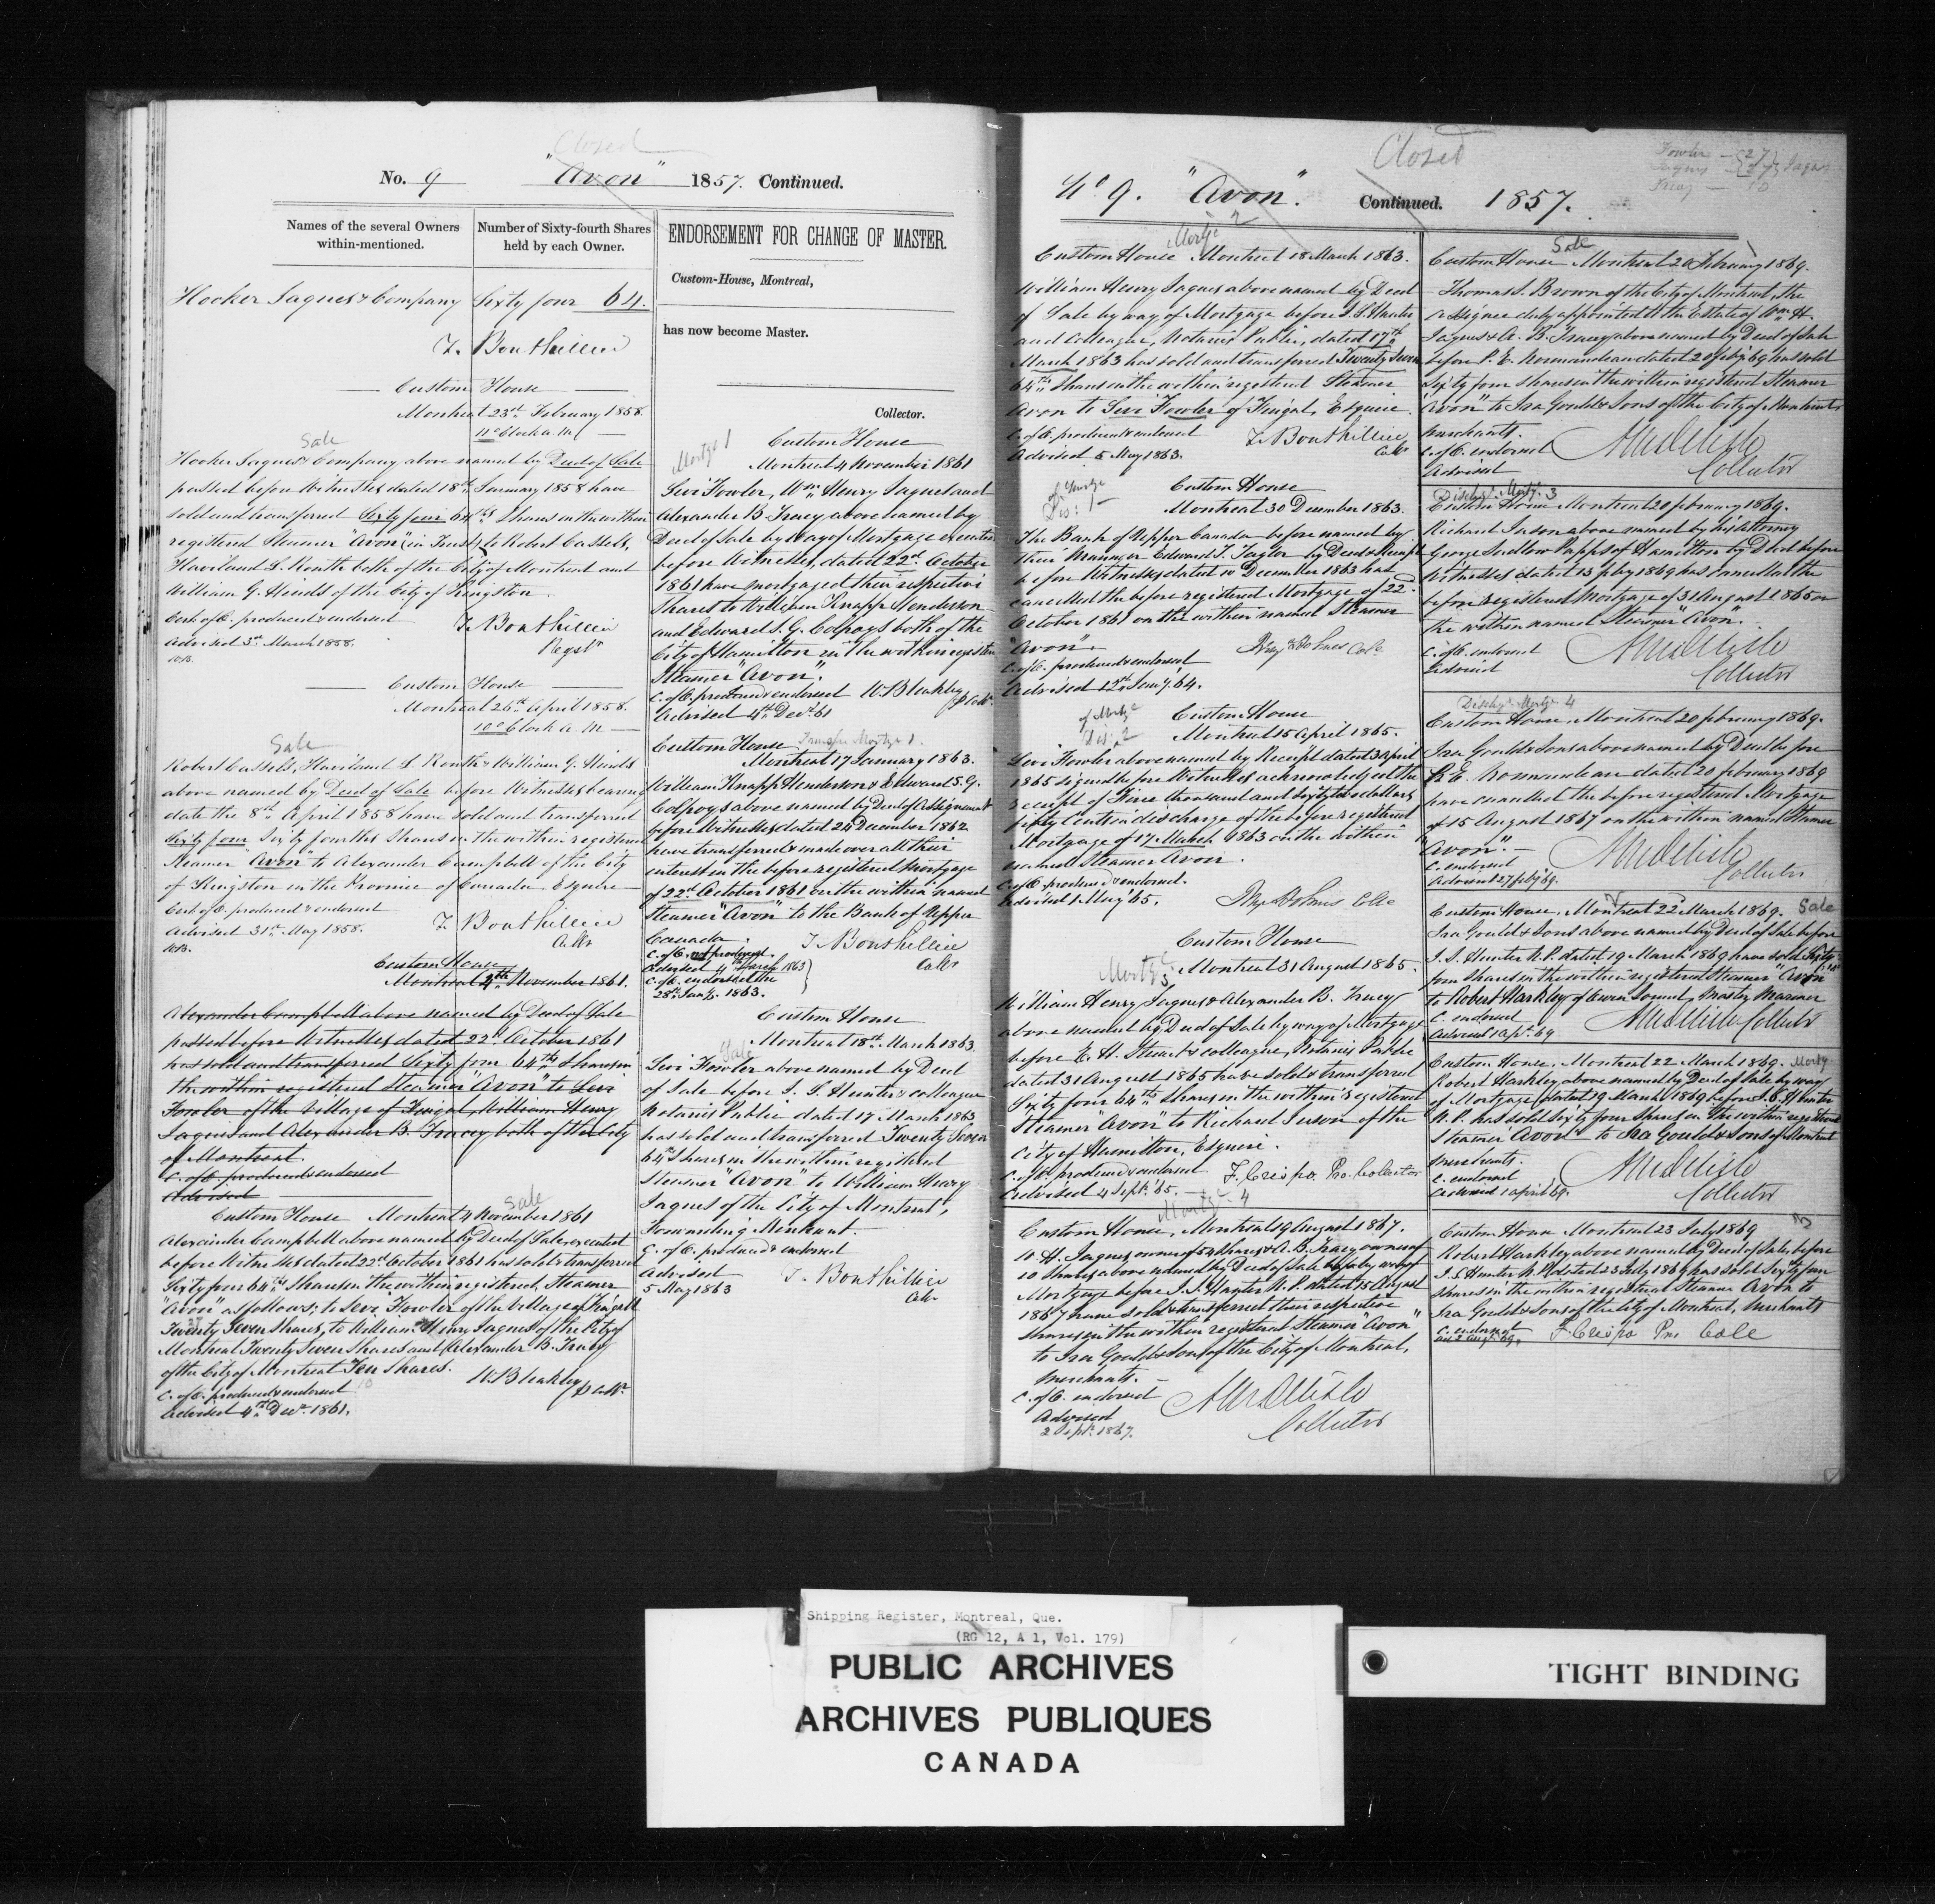 Closed
No. 9 "Avon" 1857. Continued.
Names of the several Owners within-mentioned.
Number of Sixty-fourth Shares held by each Owner.
Hooker Jaques & Company Sixty four 64.
T. Bouthillier
Custom House
Montreal 23rd February 1858.
11 o'Clock a.m.
Sale
Hooker Jaques & Company above named by Deed of Sale
passed before Witnesses dated 18th January 1858 have
sold and transferred Sixty four 64ths Shares in the within
registered Steamer "Avon" (in Trust) to Robert Cassels,
Haviland L. Routh both of the City of Montreal and
William G. Hinds of the City of Kingston.
Cert. of O. produced & endorsed
T. Bouthillier
Regstr
Advised 3rd March 1858.
Custom House
Montreal 26th April 1858.
10 o'Clock a.m.
Sale
Robert Cassels, Haviland L. Routh & William G. Hinds
above named by Deed of Sale before Witnesses bearing
date the 8th April 1858 have sold and transferred
Sixty four Sixty fourths Shares in the within registered
Steamer "Avon" to Alexander Campbell of the City
of Kingston in the Province of Canada Esquire
Cert. of O. produced & endorsed
T. Bouthillier
Advised 31st May 1858.
Custom House
Montreal 4th November 1861.
Alexander Campbell above named by Deed of Sale
passed before Witnesses dated 22d October 1861
has sold and transferred Sixty four 64ths Shares in
the within registered Steamer "Avon" to Levi
Fowler of the Village of Fingal, William Henry
Jaques and Alexander B. Tracey both of the City
of Montreal.
C. of O. produced & endorsed
Advised
Sale
Custom House Montreal 4 November 1861
Alexander Campbell above named by Deed of Sale executed
before Witnesses dated 22d October 1861 has sold & transferred
Sixty four 64ths Shares in the within registered Steamer
"Avon" as follows: to Levi Fowler of the Village of Fingal
Twenty Seven Shares, to William Henry Jaques of the City of
Montreal Twenty Seven Shares and Alexander B. Tracy
of the City of Montreal Ten Shares. 10
C. of O. produced & endorsed
W. Bleakley
Advised 4th Decr. 1861.
ENDORSEMENT FOR CHANGE OF MASTER.
Custom-House, Montreal,
has now become Master.
Collector.
Mortge 1
Custom House
Montreal 4 November 1861
Levi Fowler, Wm Henry Jaques and
Alexander B. Tracy above named by
Deed of Sale by way of Mortgage executed
before Witnesses, dated 22d October
1861 have mortgaged their respective
Shares to William Knapp Henderson
and Edward S. G. Colpoys both of the
City of Hamilton in the within registered
Steamer "Avon".
C. of O. produced & endorsed W. Bleakley
Advised 4th Decr. 61
Transfer Mortge 1.
Custom House
Montreal 17 January 1863.
William Knapp Henderson & Edward S. G.
Colpoys above named by Deed of Assignment
before Witnesses dated 24 December 1862
have transferred & made over all their
interest in the before registered Mortgage
of 22d October 1861 on the within named
Steamer "Avon" to the Bank of Upper
Canada.
T. Bouthillier
C. of O. not produced.
Advised 4th March 1863
C. of O. endorsed the
28th Jany. 1863.
Custom House
Montreal 18th March 1863.
Sale
Levi Fowler above named by Deed
of Sale before J. S. Hunter & colleague
Notaries Public dated 17 March 1863
has sold and transferred Twenty Seven
64th Shares in the within registered
Steamer "Avon" to William Henry
Jaques of the City of Montreal,
Forwarding Merchant.
C. of O. produced & endorsed
Advised
T. Bouthillier
5 May 1863
Closed
No 9. "Avon". Continued. 1857.
Fowler — 27
Jaques — 27
Tracy — 10
Mortge 2
Custom House Montreal 18 March 1863.
William Henry Jaques above named by Deed
of Sale by way of Mortgage before J. S. Hunter
and Colleague, Notaries Public, dated 17th
March 1863 has sold and transferred Twenty Seven
64ths Shares in the within registered Steamer
Avon to Levi Fowler of Fingal, Esquire.
C. of O. produced & endorsed
T. Bouthillier
Advised 5 May 1863.
Dis: of Mortge 1
Custom House
Montreal 30 December 1863.
The Bank of Upper Canada before named by
their Manager Edward T. Taylor by Deed & Receipt
before Witnesses dated 10 December 1863 has
cancelled the before registered Mortgage of 22.
October 1861 on the within named Steamer
"Avon".
C. of O. produced & endorsed
Advised 12th Jany. 64.
Dis: of Mortge 2
Custom House
Montreal 15 April 1865.
Levi Fowler above named by Receipt dated 3 April
1865 signed before Witnesses acknowledged the
receipt of thousand and sixty dollars
fifty Cents in discharge of the before registered
Mortgage of 17 March 1863 on the within
named Steamer Avon.
C. of O. produced & endorsed.
Advised 1 May 65.
Custom House
Mortge 3
Montreal 31 August 1865.
William Henry Jaques & Alexander B. Tracey
above named by Deed of Sale by way of Mortgage
before E. H. Stuart & colleague, Notaries Public
dated 31 August 1865 have sold & transferred
Sixty four 64ths Shares in the within registered
Steamer "Avon" to Richard Juson of the
City of Hamilton, Esquire.
C. of O. produced & endorsed F. Crispo Pro. Collector
Advised 4 Sept. 65.
Mortge 4
Custom House, Montreal 19 August 1867.
W. H. Jaques owner of 54 shares & A. B. Tracy owner of
10 shares above named by Deed of Sale by way of
Mortgage before J. S. Hunter N. P. dated 15 August
1867 have sold & transferred their respective
shares in the within registered Steamer "Avon"
to Ira Gould & Sons of the City of Montreal,
Merchants.
C. of O. endorsed
Advised
2 Sept. 1867.
Collector
Sale
Custom House Montreal 20 February 1869.
Thomas S. Brown of the City of Montreal, the
Assignee duly appointed to the Estate of Wm H.
Jaques & A. B. Tracy above named by Deed of Sale
before P. E. Normandeau dated 20 Feby 69 has sold
Sixty four shares in the within registered Steamer
"Avon" to Ira Gould & Sons of the City of Montreal
Merchants.
C. of O. endorsed
Advised
Collector
Dischge Mortge 3
Custom House Montreal 20 February 1869.
Richard Juson above named by his Attorney
George Ludlow Papps of Hamilton by Deed before
Witnesses dated 13 Feby 1869 has cancelled the
before registered Mortgage of 31 August 1865 on
the within named Steamer "Avon".
C. of O. endorsed
Advised
Collector
Dischge Mortge 4
Custom House, Montreal 20 February 1869.
Ira Gould & Sons above named by Deed before
P. E. Normandeau dated 20 February 1869
have cancelled the before registered Mortgage
of 15 August 1867 on the within named Steamer
"Avon".
C. endorsed
Advised 27 Feby 69.
Collector
Custom House, Montreal 22 March 1869. Sale
Ira Gould & Sons above named by Deed of Sale before
J. S. Hunter N. P. dated 19 March 1869 have sold Sixty
four shares in the within registered Steamer "Avon"
to Robert Harkley of Owen Sound, Master Mariner
C. endorsed
Advised 1 Apl. 69
Collector
Custom House, Montreal 22 March 1869. Mortge
Robert Harkley above named by Deed of Sale by way
of Mortgage (dated 19 March 1869 before J. S. Hunter
N. P. has sold Sixty four shares in the within registered
Steamer Avon to Ira Gould & Sons of Montreal
Merchants.
C. endorsed
Advised 1 April 69.
Collector
Custom House Montreal 23 July 1869
Robert Harkley above named by Deed of Sale, before
J. S. Hunter N. P. dated 23 July 1869 has sold Sixty four
shares in the within registered Steamer Avon to
Ira Gould & Sons of the City of Montreal, Merchants
C. endorsed
F. Crispo Pro Colle
Shipping Register, Montreal, Que.
(RG 12, A 1, Vol. 179)
PUBLIC ARCHIVES
ARCHIVES PUBLIQUES
CANADA
TIGHT BINDING